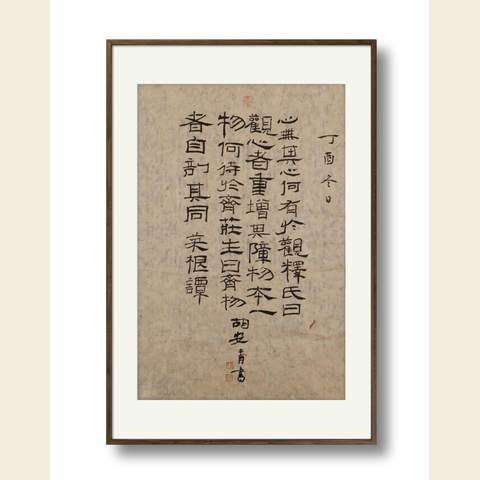 丁酉冬日
心無其心何有於觀釋氏曰
觀心者重增其障物本一
物何待於齊莊生曰齊物
者自剖其同 菜根譚
胡安青書